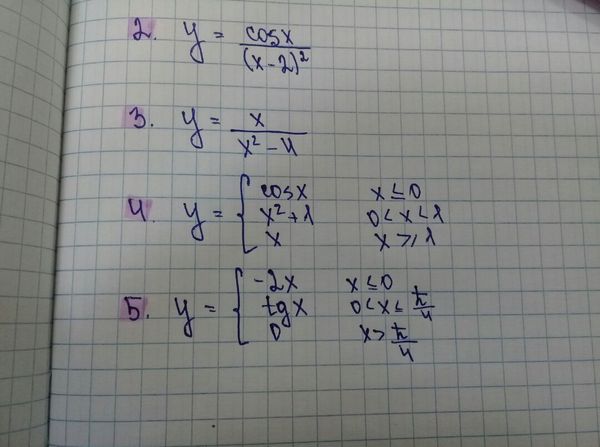 2. y = cosx / (x-2)²
3. y = x / x² - 4
4. y = { cosx x ≤ 0
x² + 1 0 < x < 1
x x ≥ 1
5. y = { -2x x ≤ 0
tgx 0 < x ≤ π/4
0 x > π/4